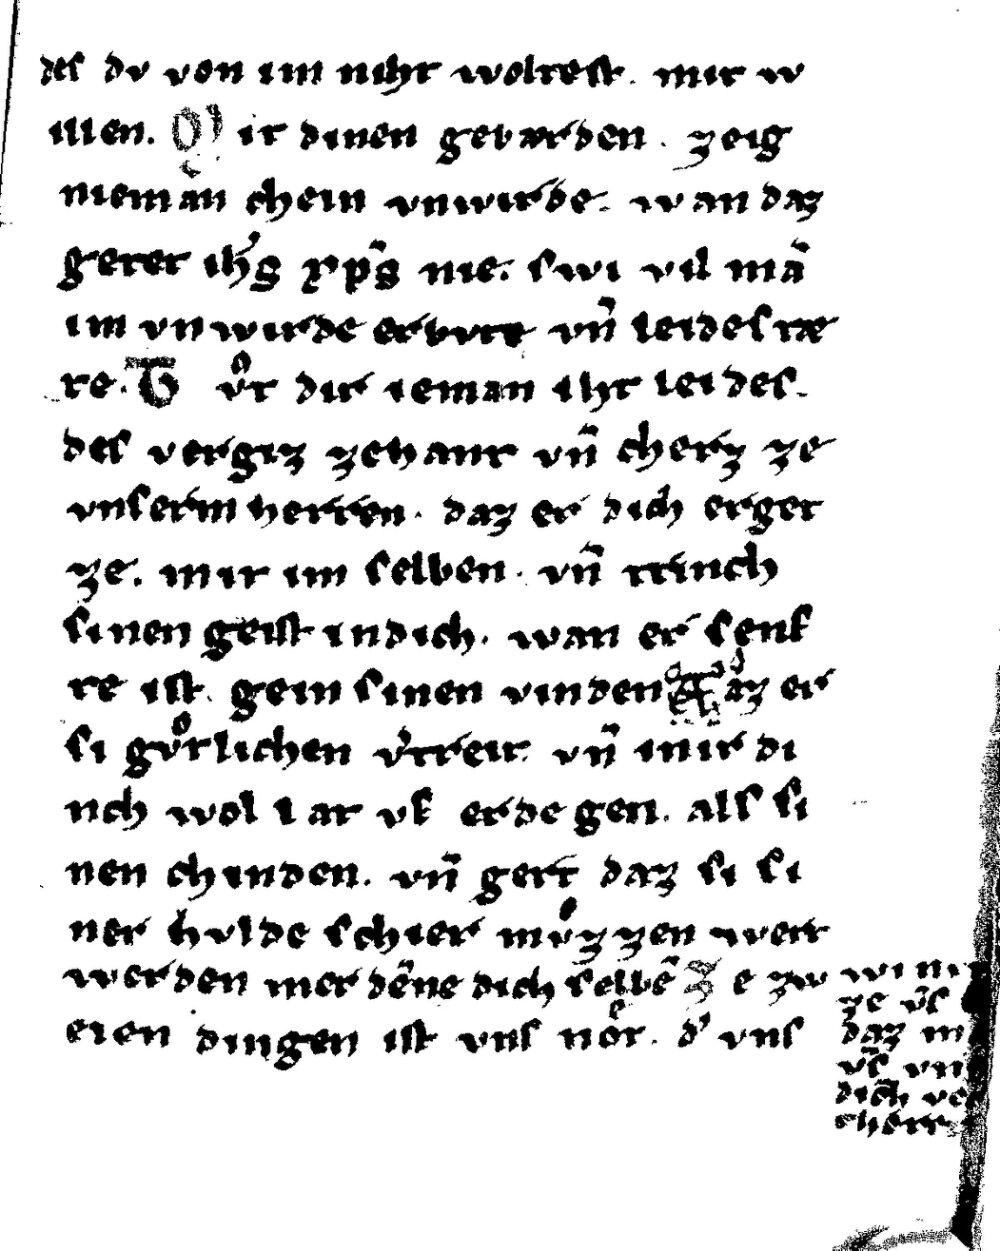 des dv von im niht woltest. mit w
illen. Mit dinen gebærden. zeig
nieman chein vnwirde. wan daz
geret ih̅s xp̅s nie. swi vil mā
im vnwirde erbvtt vn̄ leides tæ
te. Tvͦt dir ieman iht leides.
des vergiz zehant vn̄ cherz ze
vnserm herren. daz er dich erget
ze. mit im selben. vn̄ trinch
sinen geist in dich. wan er senf
te ist. gein sinen vinden daz er
si gvͦtlichen v̓treit. vn̄ in mit di
nch wol lat vf erde gen. als si
nen chinden. vn̄ gert daz si si
ner hvlde schier mvͦzzen wert
werden mer dēne dich selbē Ze zw
eien dingen ist vns noͦt. d̓ vns
wi nit
ze v̄s
daz m
v̄s vn
dich ver
cherr